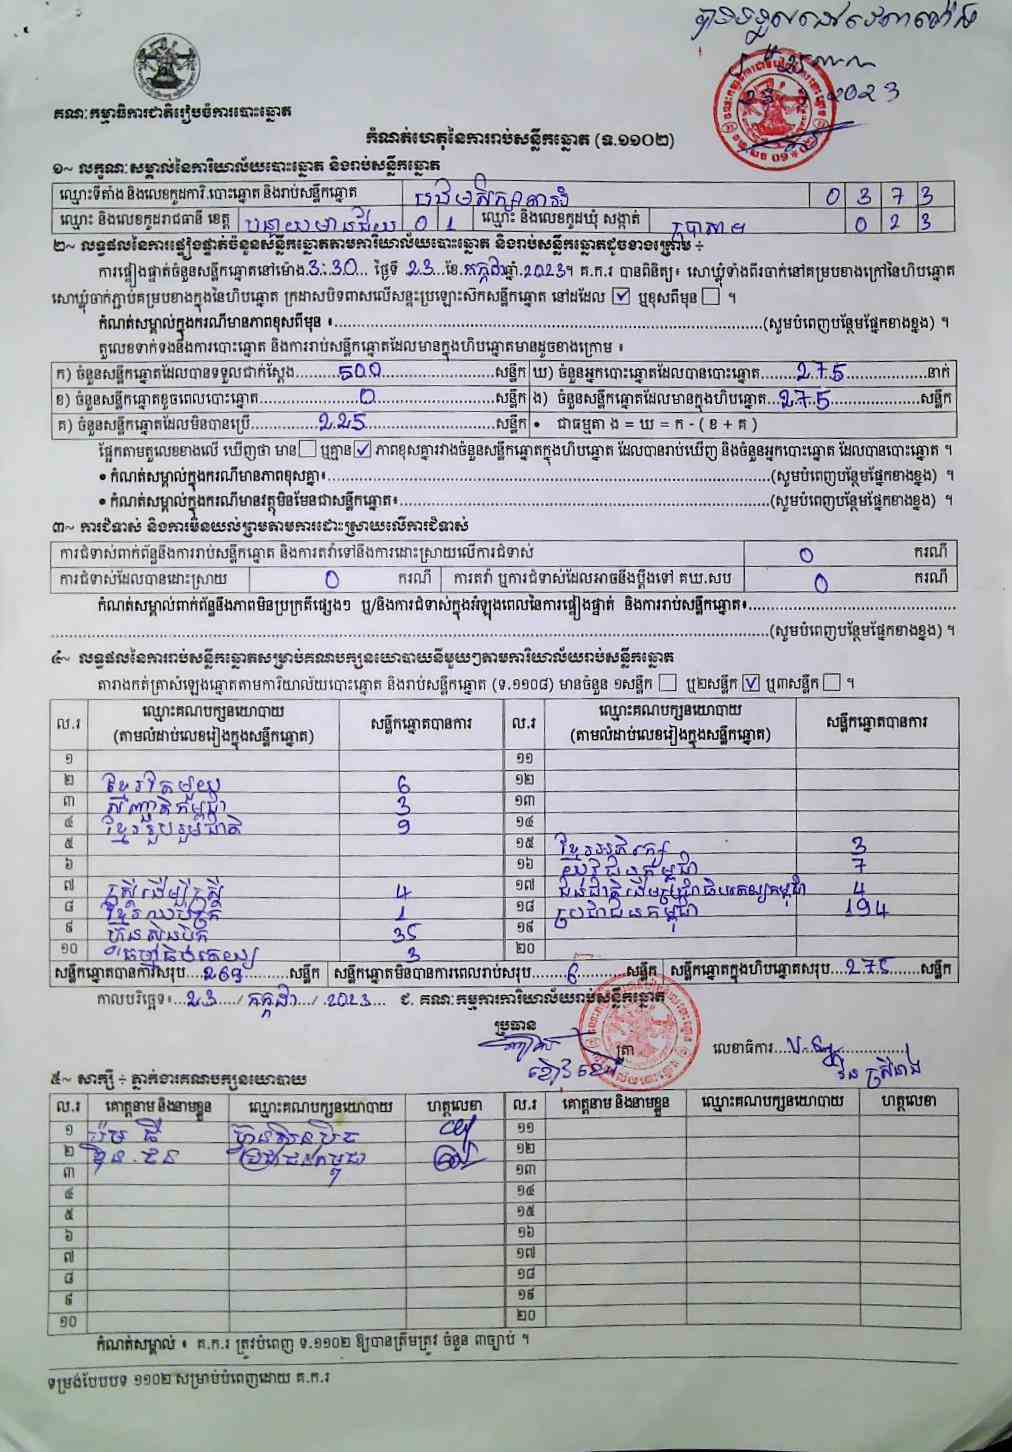 2023
គណៈកម្មាធិការជាតិរៀបចំការបោះឆ្នោត
កំណត់ហេតុនៃការរាប់សន្លឹកឆ្នោត (ទ.១១០២)
១~ លក្ខណៈសម្គាល់នៃការិយាល័យបោះឆ្នោត និងរាប់សន្លឹកឆ្នោត
ឈ្មោះទីតាំង និងលេខកូដការិ.បោះឆ្នោត និងរាប់សន្លឹកឆ្នោត 0 3 7 3
ឈ្មោះ និងលេខកូដរាជធានី ខេត្ត បន្ទាយមានជ័យ 0 1 ឈ្មោះ និងលេខកូដឃុំ សង្កាត់ 0 2 3
២~ លទ្ធផលនៃការផ្ទៀងផ្ទាត់ចំនួនសន្លឹកឆ្នោតតាមការិយាល័យបោះឆ្នោត និងរាប់សន្លឹកឆ្នោតដូចខាងក្រោម ÷
ការផ្ទៀងផ្ទាត់ចំនួនសន្លឹកឆ្នោតនៅម៉ោង 3:30 ថ្ងៃទី 23 ខែ កក្កដា ឆ្នាំ 2023 ។ គ.ក.រ បានពិនិត្យ៖ សោឃ្លុំទាំងពីរចាក់នៅគម្របខាងក្រៅនៃហិបឆ្នោត
សោឃ្លុំចាក់ភ្ជាប់គម្របខាងក្នុងនៃហិបឆ្នោត ក្រដាសបិទពាសលើសន្ទះប្រឡោះស៊កសន្លឹកឆ្នោត នៅដដែល ☑ ឬខុសពីមុន ☐ ។
កំណត់សម្គាល់ក្នុងករណីមានភាពខុសពីមុន ៖ (សូមបំពេញបន្ថែមផ្នែកខាងខ្នង) ។
តួលេខទាក់ទងនឹងការបោះឆ្នោត និងការរាប់សន្លឹកឆ្នោតដែលមានក្នុងហិបឆ្នោតមានដូចខាងក្រោម ៖
ក) ចំនួនសន្លឹកឆ្នោតដែលបានទទួលជាក់ស្តែង 500 សន្លឹក ឃ) ចំនួនអ្នកបោះឆ្នោតដែលបានបោះឆ្នោត 275 នាក់
ខ) ចំនួនសន្លឹកឆ្នោតខូចពេលបោះឆ្នោត 0 សន្លឹក ង) ចំនួនសន្លឹកឆ្នោតដែលមានក្នុងហិបឆ្នោត 275 សន្លឹក
គ) ចំនួនសន្លឹកឆ្នោតដែលមិនបានប្រើ 225 សន្លឹក • ជាធម្មតា ង = ឃ = ក - ( ខ + គ )
ផ្អែកតាមតួលេខខាងលើ ឃើញថា មាន ☐ ឬគ្មាន ☑ ភាពខុសគ្នារវាងចំនួនសន្លឹកឆ្នោតក្នុងហិបឆ្នោត ដែលបានរាប់ឃើញ និងចំនួនអ្នកបោះឆ្នោត ដែលបានបោះឆ្នោត ។
• កំណត់សម្គាល់ក្នុងករណីមានភាពខុសគ្នា៖ (សូមបំពេញបន្ថែមផ្នែកខាងខ្នង) ។
• កំណត់សម្គាល់ក្នុងករណីមានវត្ថុមិនមែនជាសន្លឹកឆ្នោត៖ (សូមបំពេញបន្ថែមផ្នែកខាងខ្នង) ។
៣~ ការជំទាស់ និងការមិនយល់ព្រមតាមការដោះស្រាយលើការជំទាស់
ការជំទាស់ពាក់ព័ន្ធនឹងការរាប់សន្លឹកឆ្នោត និងការតវ៉ាទៅនឹងការដោះស្រាយលើការជំទាស់ 0 ករណី
ការជំទាស់ដែលបានដោះស្រាយ 0 ករណី ការតវ៉ា ឬការជំទាស់ដែលអាចនឹងប្តឹងទៅ គឃ.សប 0 ករណី
កំណត់សម្គាល់ពាក់ព័ន្ធនឹងភាពមិនប្រក្រតីផ្សេងៗ ឬ/និងការជំទាស់ក្នុងអំឡុងពេលនៃការផ្ទៀងផ្ទាត់ និងការរាប់សន្លឹកឆ្នោត៖
(សូមបំពេញបន្ថែមផ្នែកខាងខ្នង) ។
៤~ លទ្ធផលនៃការរាប់សន្លឹកឆ្នោតសម្រាប់គណបក្សនយោបាយនីមួយៗតាមការិយាល័យរាប់សន្លឹកឆ្នោត
តារាងកត់ត្រាសំឡេងឆ្នោតតាមការិយាល័យបោះឆ្នោត និងរាប់សន្លឹកឆ្នោត (ទ.១១០៨) មានចំនួន ១សន្លឹក ☐ ឬ២សន្លឹក ☑ ឬ៣សន្លឹក ☐ ។
ល.រ ឈ្មោះគណបក្សនយោបាយ (តាមលំដាប់លេខរៀងក្នុងសន្លឹកឆ្នោត) សន្លឹកឆ្នោតបានការ ល.រ ឈ្មោះគណបក្សនយោបាយ (តាមលំដាប់លេខរៀងក្នុងសន្លឹកឆ្នោត) សន្លឹកឆ្នោតបានការ
១ ១១
២ ខ្មែរតែមួយ 6 ១២
៣ សញ្ជាតិកម្ពុជា 3 ១៣
៤ ខ្មែររួបរួមជាតិ 9 ១៤
៥ ១៥ ខ្មែរអភិរក្ស 3
៦ ១៦ យុវជនកម្ពុជា 7
៧ ស្ត្រីដើម្បីស្ត្រី 4 ១៧ ជនជាតិដើមប្រជាធិបតេយ្យកម្ពុជា 4
៨ ខ្មែរឈប់ក្រ 1 ១៨ ប្រជាជនកម្ពុជា 194
៩ ហ៊្វុនស៊ិនប៉ិច 35 ១៩
១០ ធម្មាធិបតេយ្យ 3 ២០
សន្លឹកឆ្នោតបានការសរុប 269 សន្លឹក សន្លឹកឆ្នោតមិនបានការពេលរាប់សរុប 6 សន្លឹក សន្លឹកឆ្នោតក្នុងហិបឆ្នោតសរុប 275 សន្លឹក
កាលបរិច្ឆេទ៖ 23 / កក្កដា / 2023 ជ. គណៈកម្មការការិយាល័យរាប់សន្លឹកឆ្នោត
ប្រធាន
ត្រា លេខាធិការ
៥~ សាក្សី ÷ ភ្នាក់ងារគណបក្សនយោបាយ
ល.រ គោត្តនាម និងនាមខ្លួន ឈ្មោះគណបក្សនយោបាយ ហត្ថលេខា ល.រ គោត្តនាម និងនាមខ្លួន ឈ្មោះគណបក្សនយោបាយ ហត្ថលេខា
១ ហ៊្វុនស៊ិនប៉ិច ១១
២ ប្រជាជនកម្ពុជា ១២
៣ ១៣
៤ ១៤
៥ ១៥
៦ ១៦
៧ ១៧
៨ ១៨
៩ ១៩
១០ ២០
កំណត់សម្គាល់ ៖ គ.ក.រ ត្រូវបំពេញ ទ.១១០២ ឱ្យបានត្រឹមត្រូវ ចំនួន ៣ច្បាប់ ។
ទម្រង់បែបបទ ១១០២ សម្រាប់បំពេញដោយ គ.ក.រ